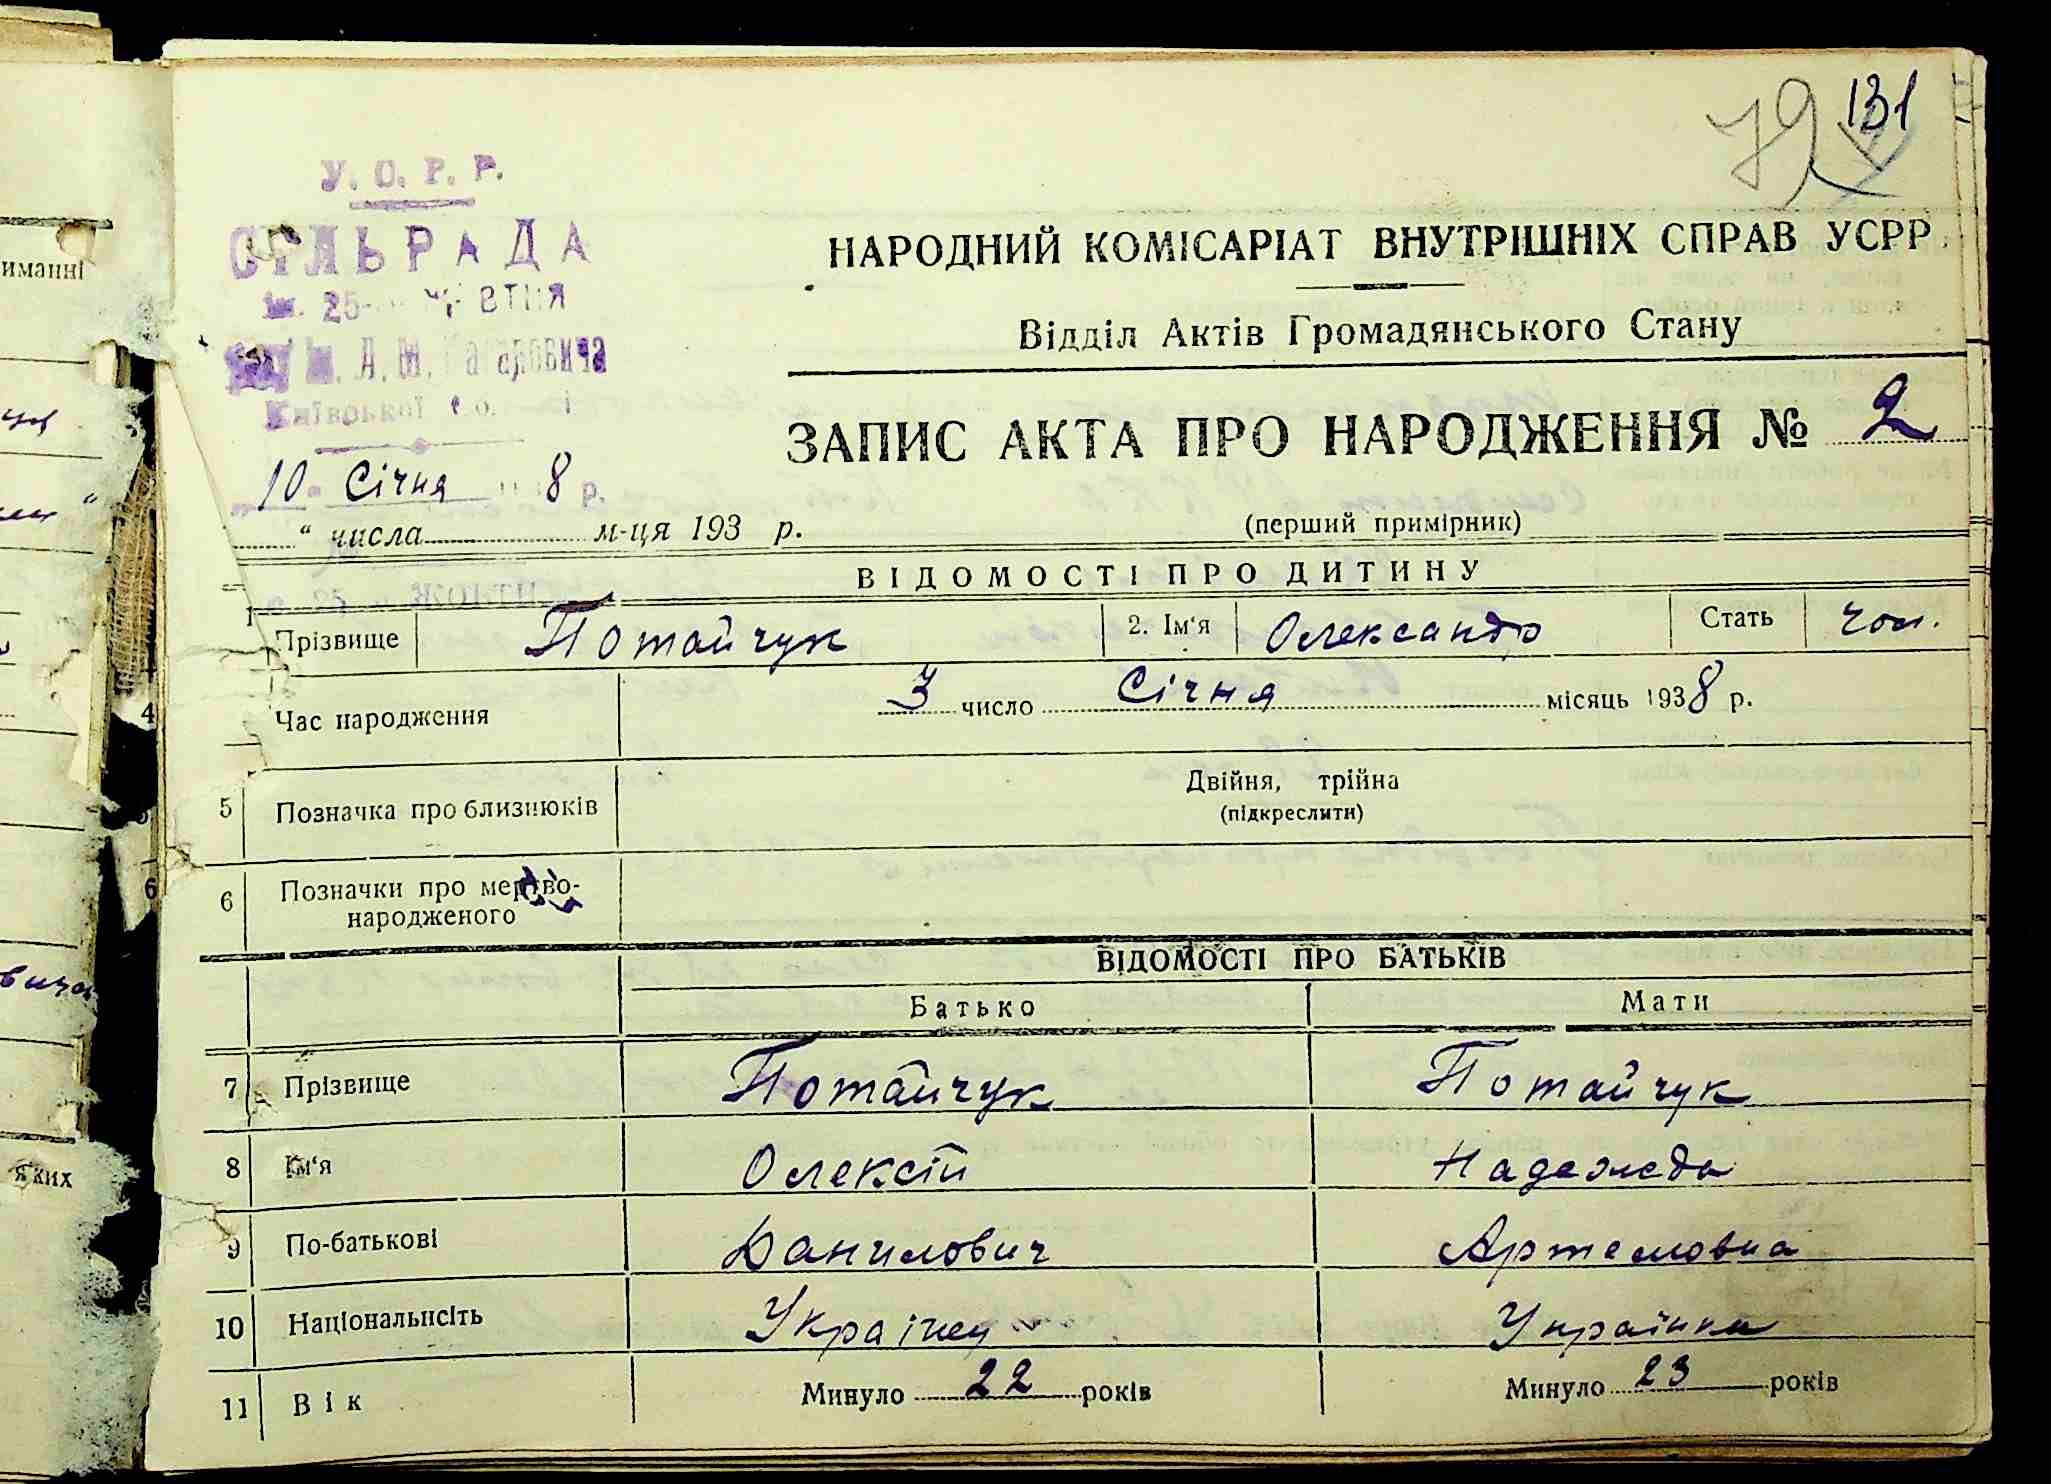 131
79
У. С. Р. Р.
СІЛЬРАДА
ім. 25-
А. М. Кагановича
Київської
10 Січня 8 р.
НАРОДНИЙ КОМІСАРІАТ ВНУТРІШНІХ СПРАВ УСРР
Відділ Актів Громадянського Стану
ЗАПИС АКТА ПРО НАРОДЖЕННЯ № 2
“ числа м-ця 193 р.
(перший примірник)
ВІДОМОСТІ ПРО ДИТИНУ
1 Прізвище Потайчук 2. Ім‘я Олександр Стать чол.
Час народження 3 число Січня місяць 1938 р.
5 Позначка про близнюків Двійня, трійна
(підкреслити)
6 Позначки про мертво-
народженого
ВІДОМОСТІ ПРО БАТЬКІВ
Батько Мати
7 Прізвище Потайчук Потайчук
8 Ім‘я Олексій Надежда
9 По-батькові Данилович Артемовна
10 Національнсіть Українец Українка
11 Вік Минуло 22 років Минуло 23 років
иманні
4
6
вича
яких